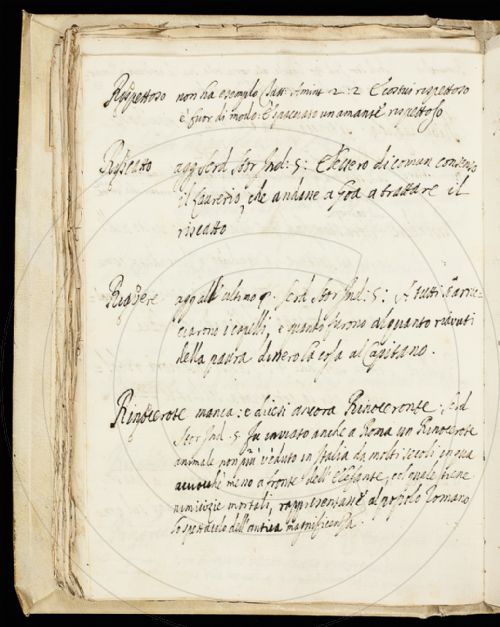 Rispettoso non ha esempio Tass: Amint: 2: 2 E costui rispettoso
è fuor di moda: È spacciato un amante rispettoso
Riscatto agg: Serd Stor Ind: 5: Elessero di comun consenso
il che andasse a Goa a trattare il
riscatto
Riavere agg all' ultimo §. Serd Stor Ind: 5: A tutti s'arric-
ciarono i capelli, e quando furono alquanto riavuti
della paura dissero la cosa al Capitano.
Rinocerote manca: e dicesi ancora Rinoceronte. Serd
Stor Ind: 5 Fu inviato anche a Roma un Rinocerote
animale non più veduto in Italia da molti secoli
meno a fronte dell' Elefante, col quale tiene
nimicizie mortali, rappresentasse al popolo Romano
lo spettacolo dell' antica magnificenza.